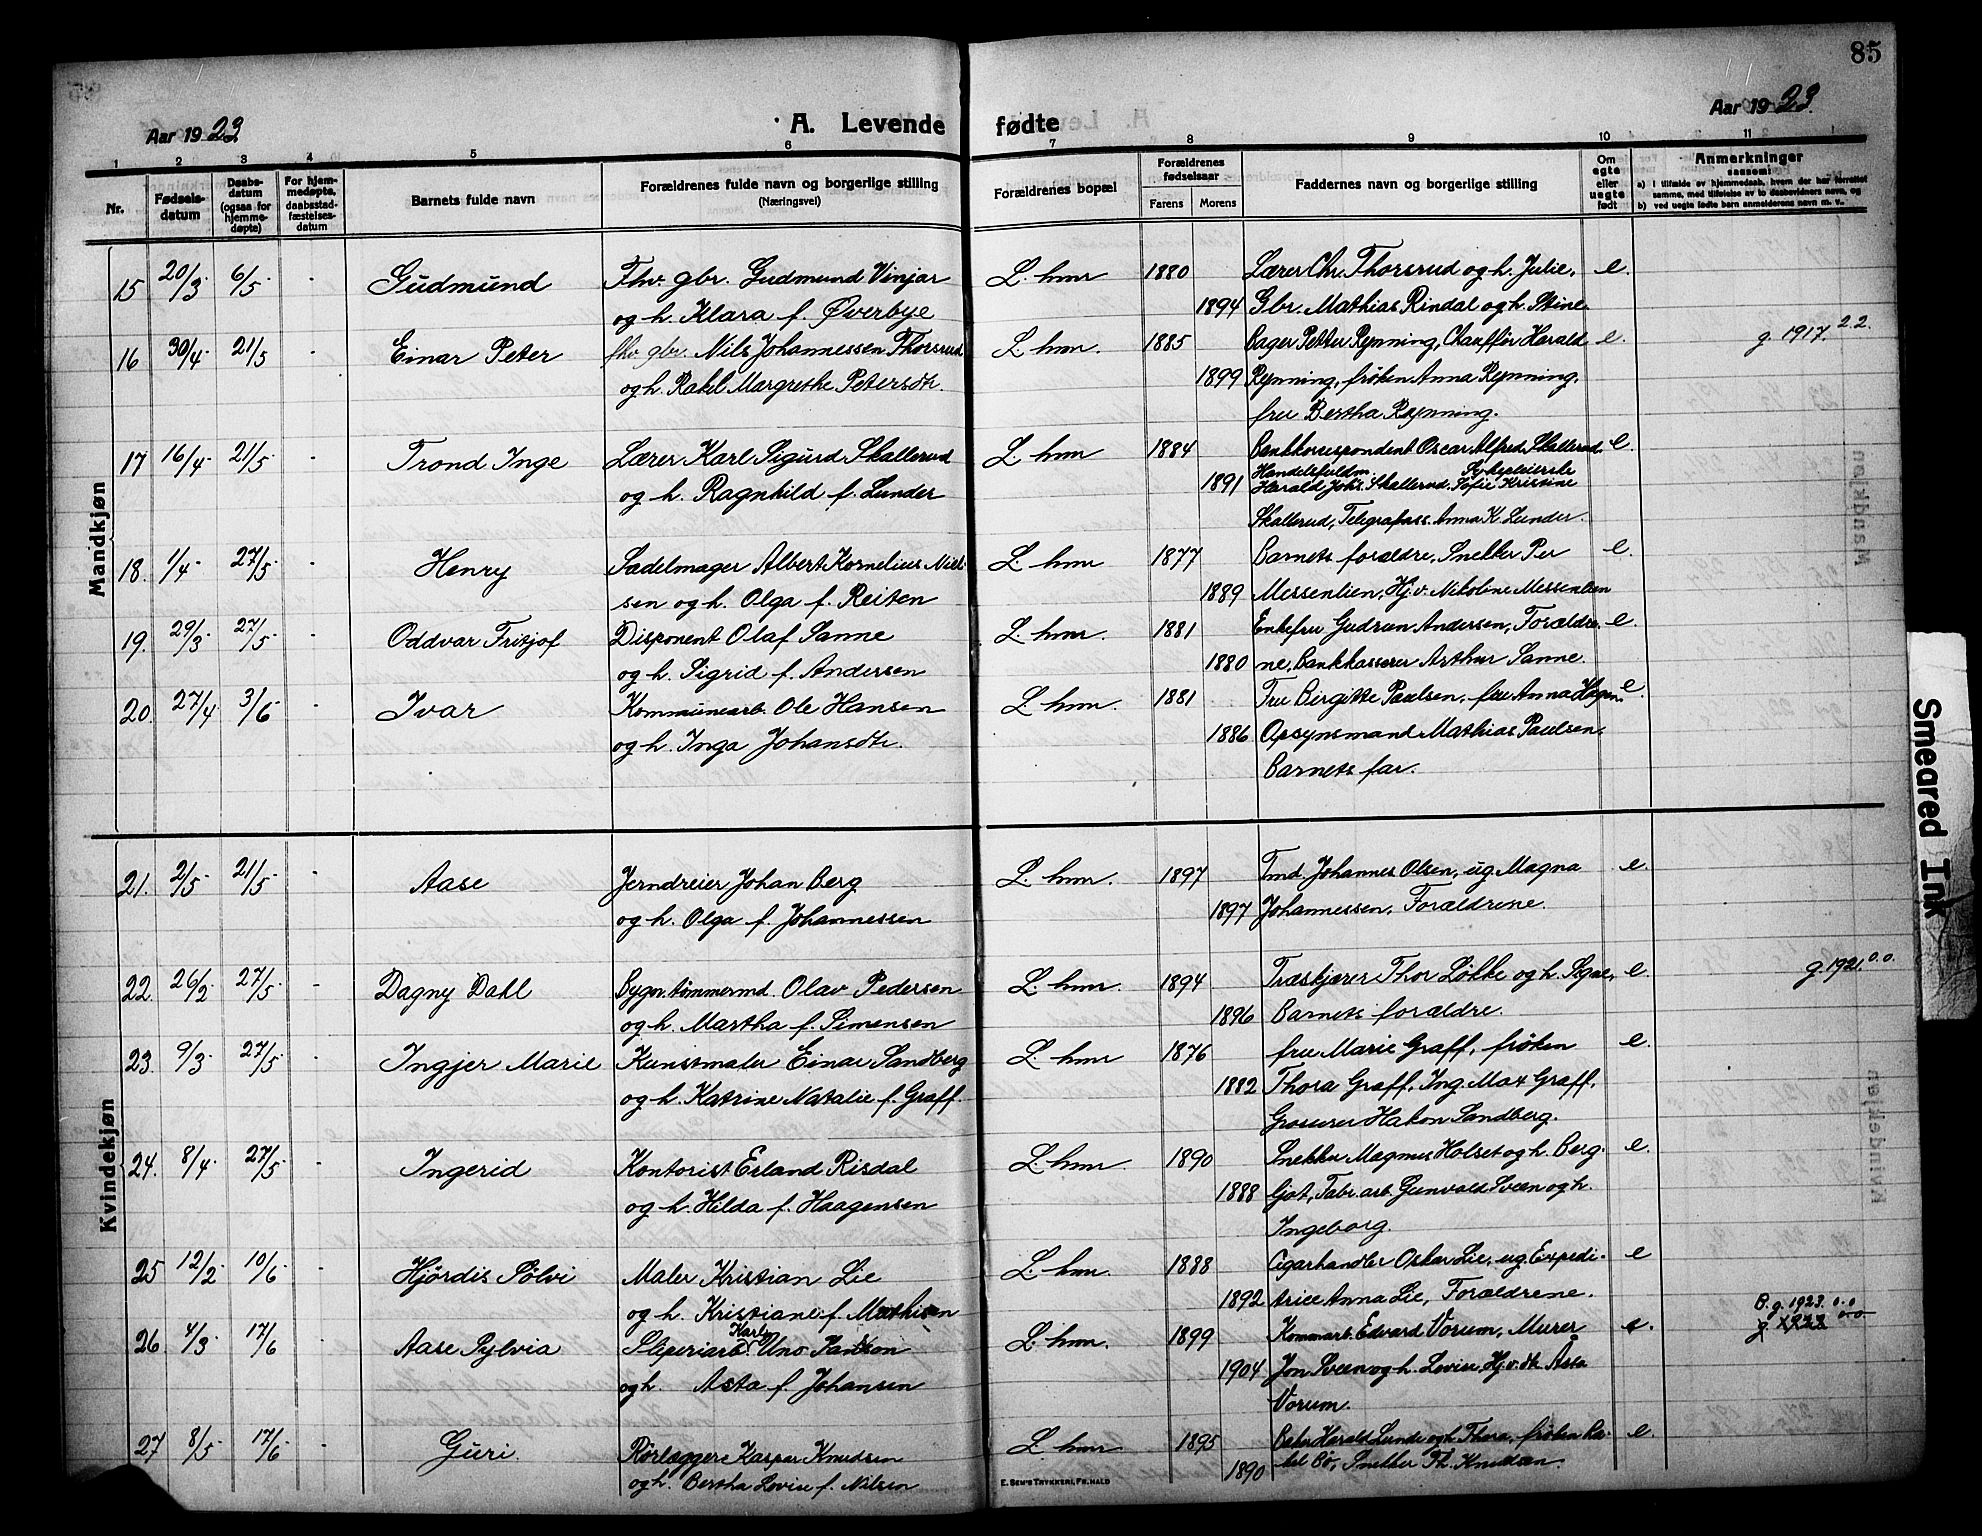 85
Aar 1923
A. Levende fødte
Aar 1923.
1 2 3 4 5 6 7 8 9 10 11
Nr.
Fødsels-
datum
Daabs-
datum
(ogsaa for
hjemme-
døpte)
For hjem-
medøpte,
daabsstad-
fæstelses-
datum
Barnets fulde navn
Forældrenes fulde navn og borgerlige stilling
(Næringsvei)
Forældrenes bopæl
Forældrenes
fødselsaar
Farens Morens
Faddernes navn og borgerlige stilling
Om
ægte
eller
uægte
født
Anmerkninger
saasom:
a) i tilfælde av hjemmedaab, hvem der har forrettet
samme, med tilføielse av to daabsvidners navn, og
b) ved uegte fødte barn anmelderens navn m. v.
Mandkjøn
15 20/3 6/5 - Gudmund Fhv. gbr. Gudmund Vinjar L.hmr 1880 Lærer Chr. Thorsrud og h. Julie, e.
og h. Klara f. Øverbye 1894 Gbr. Mathias Rindal og h. Stine
16 30/4 21/5 - Einar Peter fhv. gbr. Nils Johannessen Thorsrud L.hmr. 1885 Bager Petter Rynning, Chauffør Harald e. g. 1917. 2.2.
og h. Rakel Margrethe Petersdtr. 1899 Rynning, frøken Anna Rynning,
fru Bertha Rynning.
17 16/4 21/5 - Trond Inge Lærer Karl Sigurd Skallerud L.hmr 1884 Bankkorrespondent Oscar Alfred Skallerud, e
og h. Ragnhild f. Lunder 1891 Handelsfuldm. Harald Johs. Skallerud. Sykepleierske Sofie Kristine
Skallerud, Telegrafass. Anna K. Lunder.
18. 1/4 27/5 - Henry Sadelmager Albert Kornelius Niel- L.hmr 1877 Barnets forældre, Snekker Per e.
sen og h. Olga f. Reiten 1889 Messenlien, Hj.v. Nikoline Messenlien
19. 29/3 27/5 - Oddvar Fritjof Disponent Olaf Sanne L.hmr. 1881 Enkefru Gudrun Andersen, Forældre- e.
og h. Sigrid f. Andersen 1880 ne, Bankkasserer Arthur Sanne.
20. 27/4 3/6 - Ivar Kommunearb. Ole Hansen L.hmr. 1881 Fru Birgitte Paulsen, fru Anna Hagen, e.
og h. Inga Johansdtr. 1886 Opsynsmand Mathias Paulsen,
Barnets far.
Kvindekjøn
21. 2/5 21/5 - Aase Jerndreier Johan Berg L.hmr. 1897 Tmd. Johannes Olsen, ug. Magna e.
og h. Olga f. Johannessen 1897 Johannessen, Forældrene.
22. 26/2 27/5 - Dagny Dahl Bygn.tømmermd. Olav Pedersen L.hmr. 1894 Træskjærer Thor Løkke og h. e. g. 1921. 0.0.
og h. Martha f. Simensen 1896 Barnets forældre.
23. 9/3 27/5 - Ingjer Marie Kunstmaler Einar Sandberg L.hmr 1876 fru Marie Graff, frøken e.
og h. Katrine Natalie f. Graff. 1882 Thora Graff, Ing. Max Graff,
Grosserer Hakon Sandberg.
24. 8/4 27/5 - Ingerid Kontorist Erland Risdal L.hmr. 1890 Snekker Magnus Holset og h. Berg- e.
og h. Hilda f. Haagensen 1888 ljot, Fabr.arb. Gunvald Sveen og h.
Ingeborg.
25 12/2 10/6 - Hjørdis Sølvi Maler Kristian Lie L.hmr. 1888 Cigarhandler Oskar Lie, ug. Expedi- e
og h. Kristiane f. Mathisen 1892 trice Anna Lie, Forældrene.
26 4/3 17/6 - Aase Sylvia Sliperiarb. Karl Uno L.hmr. 1899 Komm.arb. Edvard Vorum, Murer e. B. g. 1923. 0.0
og h. Asta f. Johansen 1904 Jon Sveen og h. Lovise, Hj.v. dtr. Åsta
Vorum.
27 8/5 17/6 - Guri Rørlæggere Kaspar Knudsen L.hmr 1895 Baker Harald Lunde og h. Thora, frøken Ra- e.
og h. Bertha Lovise f. Nilsen 1890 kel Bø, Snekker Th. Knudsen.
E. SEM'S TRYKKERI, FR.HALD
Smeared Ink